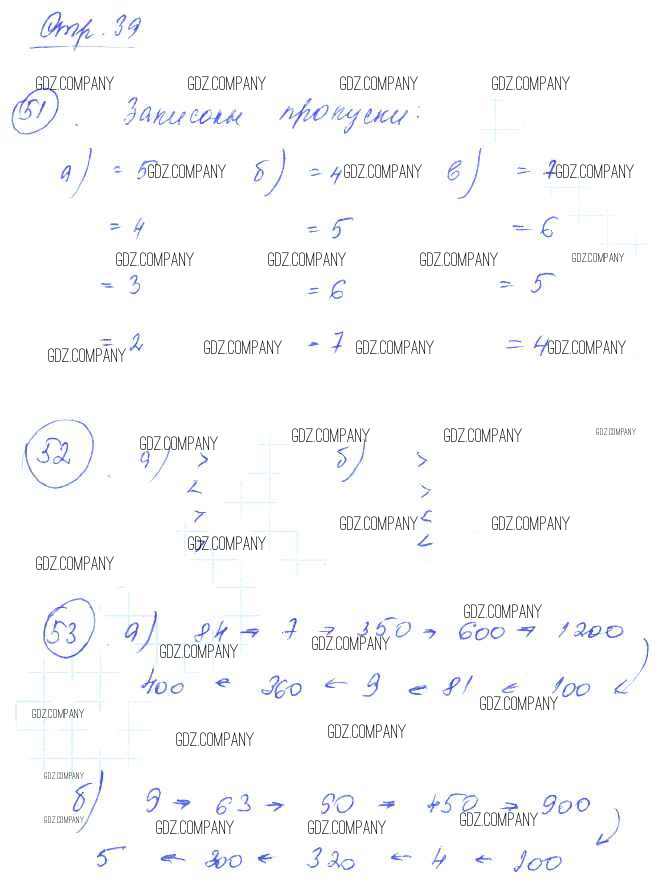 Стр. 39
GDZ.COMPANY GDZ.COMPANY GDZ.COMPANY GDZ.COMPANY
51. Записаны пропуски:
а) = 5 GDZ.COMPANY б) = 4 GDZ.COMPANY в) = 7 GDZ.COMPANY
= 4 = 5 = 6
GDZ.COMPANY GDZ.COMPANY GDZ.COMPANY GDZ.COMPANY
= 3 = 6 = 5
= 2 - 7 = 4
GDZ.COMPANY GDZ.COMPANY GDZ.COMPANY GDZ.COMPANY
GDZ.COMPANY GDZ.COMPANY GDZ.COMPANY GDZ.COMPANY
52. а) > б) >
< >
> <
GDZ.COMPANY GDZ.COMPANY
> <
GDZ.COMPANY
GDZ.COMPANY
GDZ.COMPANY
53 а) 84 → 7 → 350 → 600 → 1200
GDZ.COMPANY GDZ.COMPANY
400 ← 360 ← 9 ← 81 ← 100
GDZ.COMPANY GDZ.COMPANY
GDZ.COMPANY GDZ.COMPANY
GDZ.COMPANY
б) 9 → 63 → 90 → 450 → 900
GDZ.COMPANY GDZ.COMPANY GDZ.COMPANY GDZ.COMPANY
5 ← ← 320 ← 4 ←